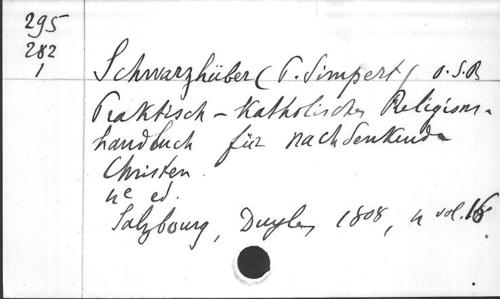 295
282
1
Schwarzhüber (P. Simpert) O.S.B
Praktisch-Katholisches Religions-
handbuch für nachdenkende
Christen.
4e ed.
Salzbourg, Duyle, 1808, 4 vol. 16